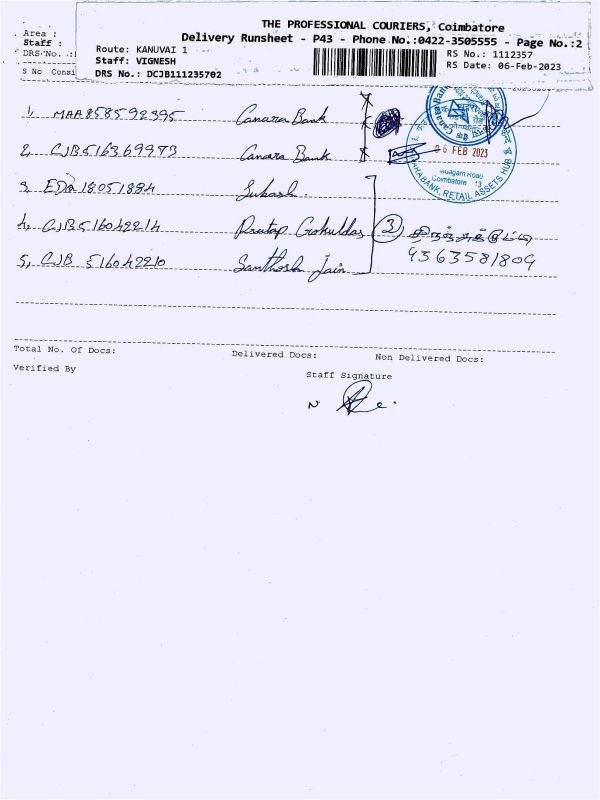 THE PROFESSIONAL COURIERS, Coimbatore
Delivery Runsheet - P43 - Phone No.:0422-3505555 - Page No.:2
Area :
Staff :
DRS No. :
S No Consi
Route: KANUVAI 1
RS No.: 1112357
Staff: VIGNESH
RS Date: 06-Feb-2023
DRS No.: DCJB111235702
1, MAA858592395 Canara Bank
2, CJB516369973 Canara Bank
06 FEB 2023
Coimbatore 13
BANK, RETAIL ASSETS HUB
3, EDA18051884
4, CJB516042214 Pratap Gokuldas 3
5, CJB 516042210 Santhosh Jain 9363581809
Total No. Of Docs: Delivered Docs: Non Delivered Docs:
Verified By
Staff Signature